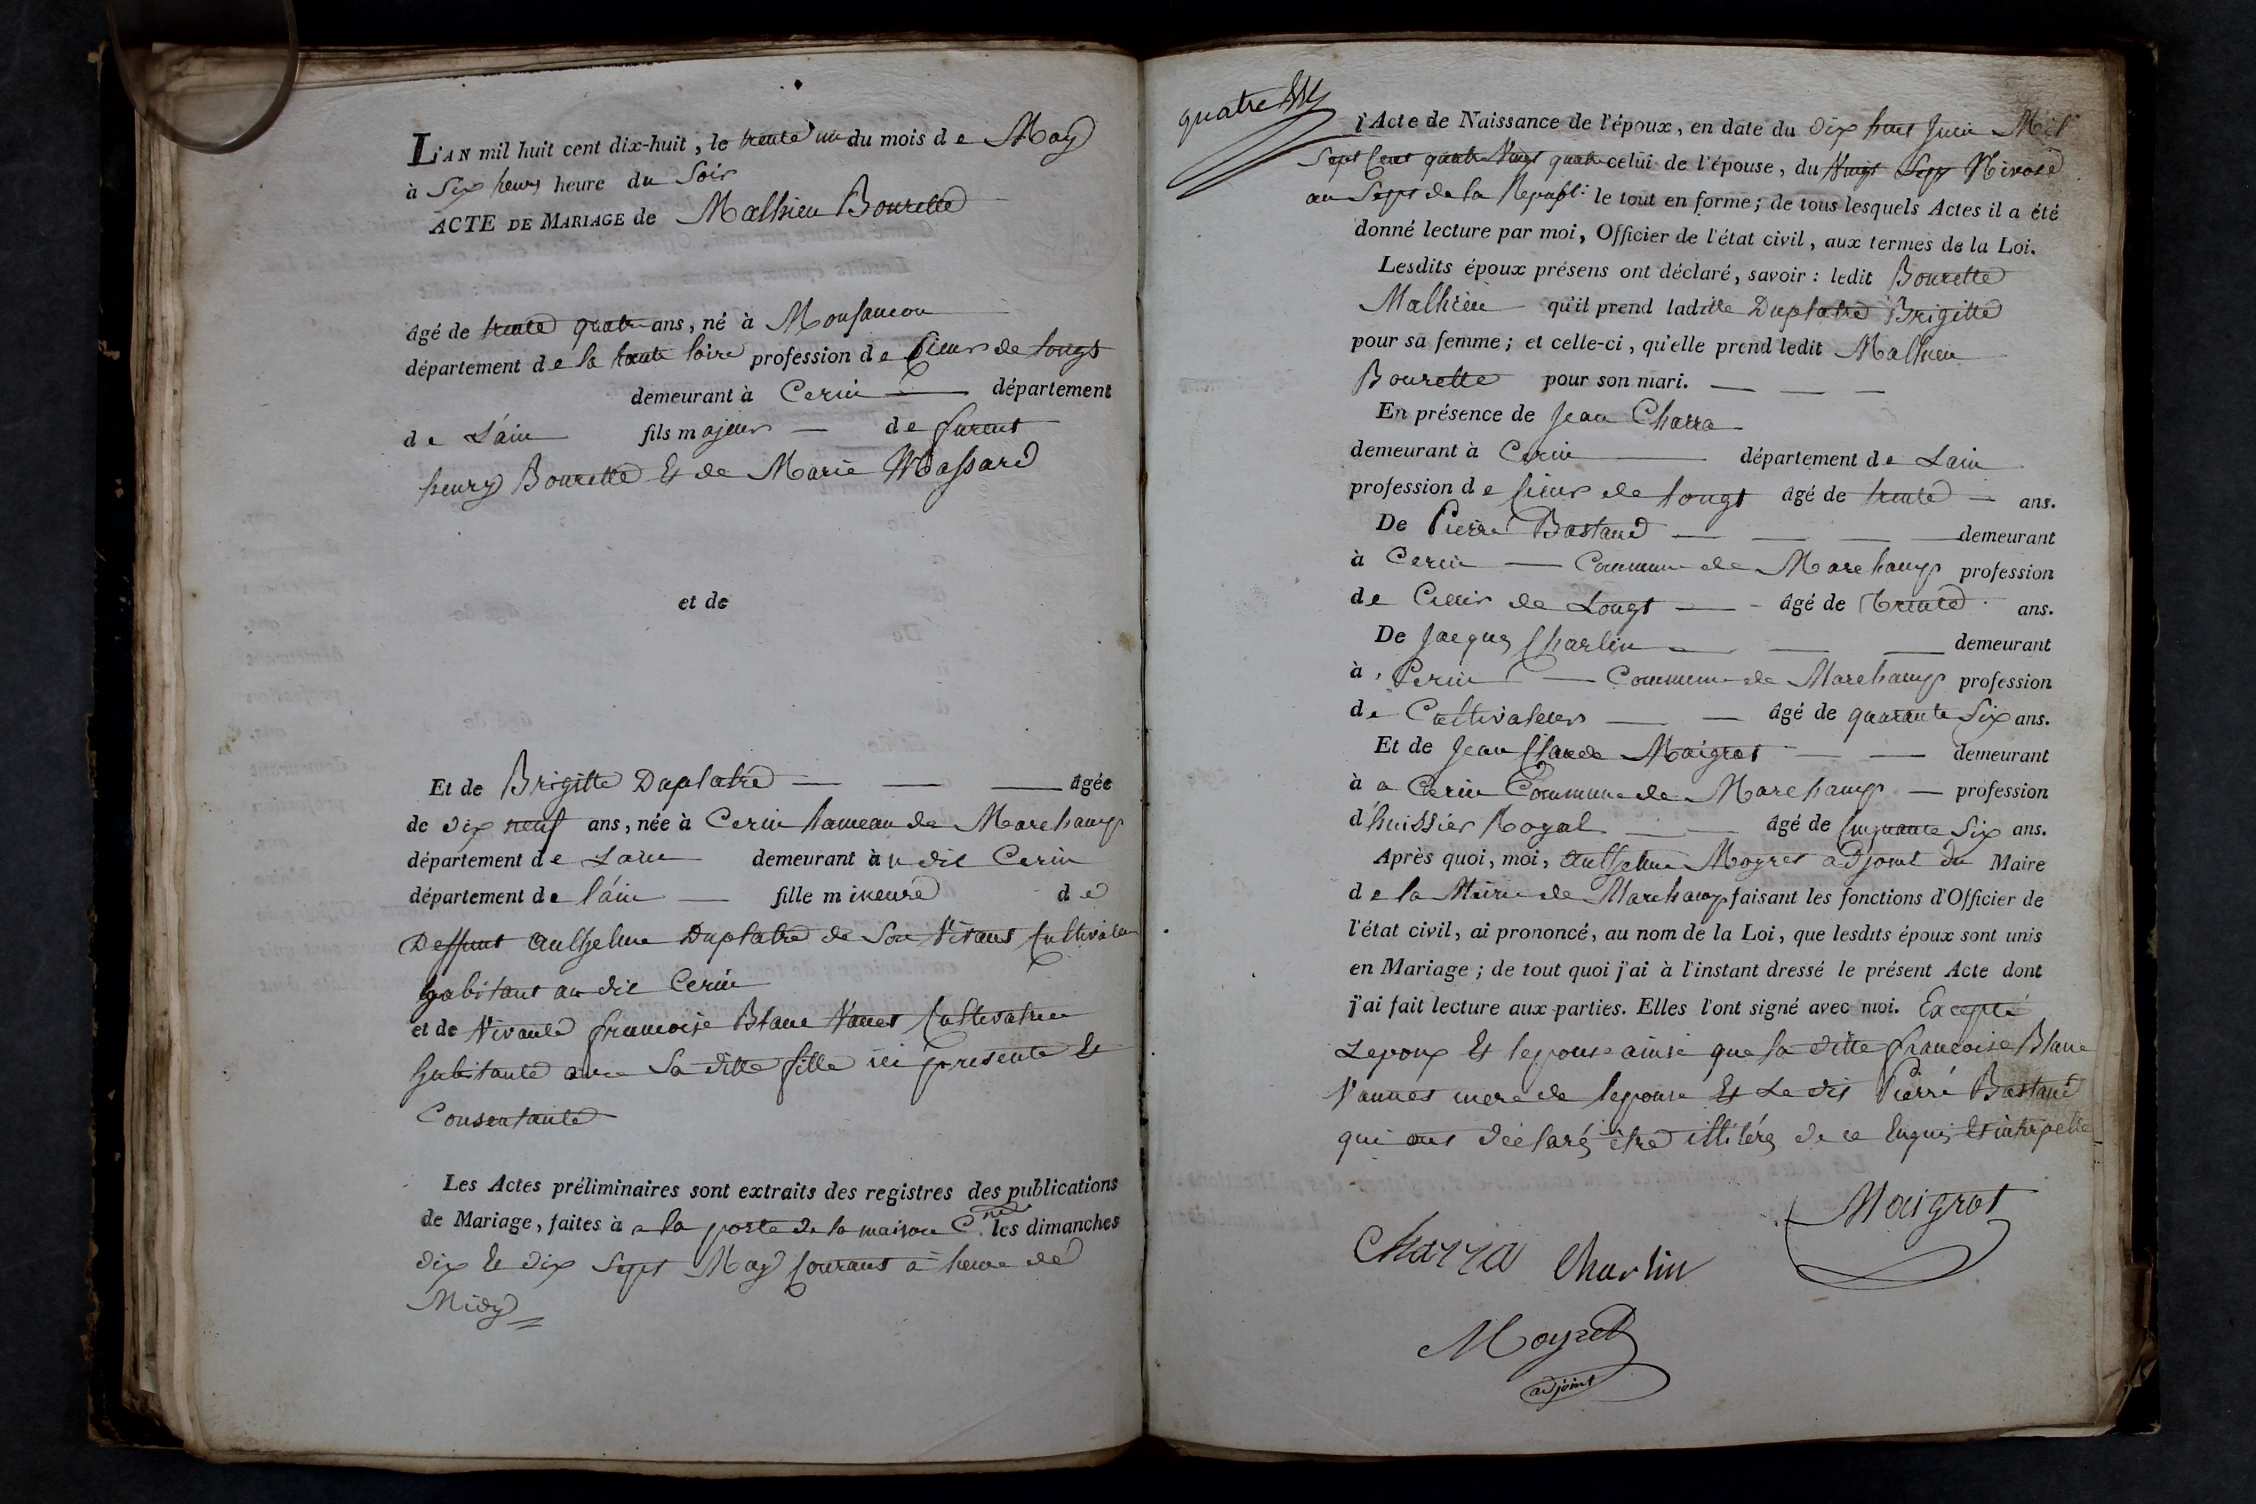 L'AN mil huit cent dix-huit, le trente un du mois de May
à Six heures heure du Soir
ACTE DE MARIAGE de Mathieu Bourette
âgé de trente quatre ans, né à Monfaucon
département de la haute loire profession de Cieur de longt
demeurant à Cerin département
de L'ain fils majeur de furent
henry Bourette Et de Marie Massard
et de
Et de Brigitte Duplatre âgée
de dix neuf ans, née à Cerin hameau de Marchamp
département de Lain demeurant à u dit Cerin
département de l'ain fille mineure de
Deffunt anthelme Duplatre de Son Vivant Cultivateur
habitant au dit Cerin
et de Vivante francoise Blanc Vannet Cultivatrice
habitante avec Sa ditte fille ici presente Et
Consentante
Les Actes préliminaires sont extraits des registres des publications
de Mariage, faites à a la porte de la maison C.ne les dimanches
dix Et dix Sept May Courant à heure de
Midy
quatre
l'Acte de Naissance de l'époux, en date du dix huit Juin Mil
Sept Cent quatre Vingt quatre celui de l'épouse, du Vingt Sept Nivose
an Sept de la Republ. le tout en forme; de tous lesquels Actes il a été
donné lecture par moi, Officier de l'état civil, aux termes de la Loi.
Lesdits époux présens ont déclaré, savoir : ledit Bourette
Mathieu qu'il prend ladite Duplatre Brigitte
pour sa femme; et celle-ci, qu'elle prend ledit Mathieu
Bourette pour son mari.
En présence de Jean Charra
demeurant à Cerin département de Lain
profession de Cieur de longt âgé de trente ans.
De Pierre Bastand demeurant
à Cerin Commune de Marchamp profession
de Cieur de Longt âgé de trente ans.
De Jacques Charlin demeurant
à Cerin Commune de Marchamp profession
de Cultivateur âgé de quarante Six ans.
Et de Jean Claude Maigrot demeurant
à a Cerin Commune de Marchamp profession
d'huissier Royal âgé de Cinquante Six ans.
Après quoi, moi, anthelme Moyret adjoint du Maire
de la Mairie de Marchamp faisant les fonctions d'Officier de
l'état civil, ai prononcé, au nom de la Loi, que lesdits époux sont unis
en Mariage; de tout quoi j'ai à l'instant dressé le présent Acte dont
j'ai fait lecture aux parties. Elles l'ont signé avec moi. Excepté
Lepoux Et lepouse ainsi que la ditte francoise Blanc
Vannet mere de lepouse Et Le dit Pierre Bastand
qui ont déclaré être illitérés de ce Enquis Et interpellé
Maigrot
Charra Charlin
Moyret
adjoint